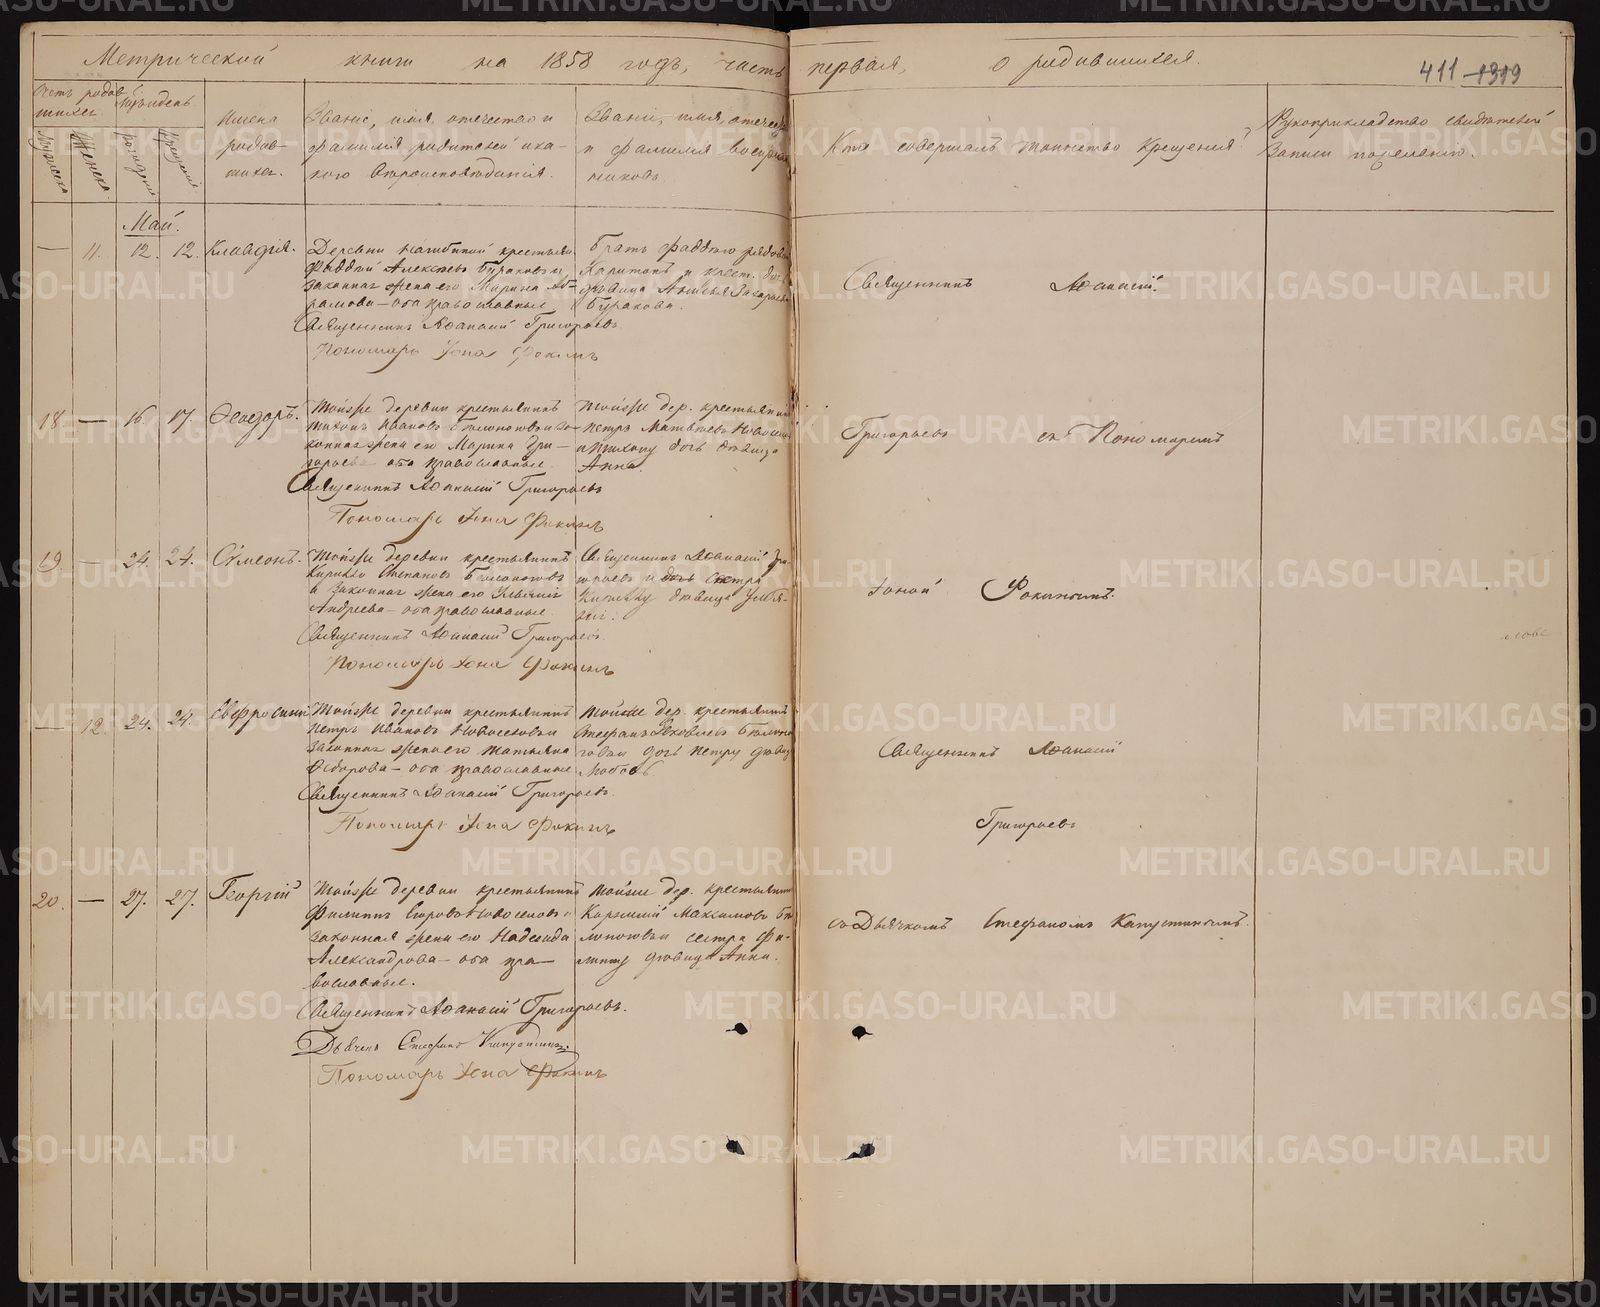 Метрической книги на 1858 годъ, часть первая, о родившихся.
411 1319
Счетъ родив-
шихся.
Мѣс. и день.
Мужеска
Женска
рожденія
крещенія
Имена
родив-
шихся.
Званіе, имя, отчество и
фамилія родителей и ка-
кого вѣроисповѣданія.
Званіе, имя, отечест
и фамилія воспріем
никовъ.
Кто совершалъ таинство крещенія
Рукоприкладство свидѣтелей
записи по желанію.
Май.
— 11. 12. 12. Клавдія.
Деревни крестьянинъ
Фаддей Алексѣевъ Бураковъ и
законная жена его Марина Аб-
рамова — оба православные
Священникъ Аѳанасій Григорьевъ
Пономарь Іона Фокинъ
Братъ Фаддею рядовой
Харитонъ и крест. доч.
дѣвица Захарова
Буракова.
Священникъ Аѳанасій
18 — 16. 17. Ѳеодоръ.
Той же деревни крестьянинъ
Тихонъ Ивановъ и за-
конная жена его Марина Гри-
горьева оба православные
Священникъ Аѳанасій Григорьевъ
Пономарь Іона Фокинъ
Той же дер. крестьянинъ
Петръ Матвѣевъ Новосел
и Тихону дочь дѣвица
Анна.
Григорьевъ съ Пономаремъ
19. — 24. 24. Сѵмеонъ.
Той же деревни крестьянинъ
Кирилъ Степановъ
и законная жена его
Андреева — оба православные
Священникъ Аѳанасій Григорьевъ
Пономарь Іона Фокинъ
Священникъ Аѳанасій Гри
горьевъ и сестра
Кирилу дѣвица Улья-
на.
Іоной Фокинымъ.
— 12. 24. 24. Евфросинія
Той же деревни крестьянинъ
Петръ Ивановъ Новоселовъ и
законная жена его Татьяна
Ѳедорова — оба православные
Священникъ Аѳанасій Григорьевъ
Пономарь Іона Фокинъ
Той же дер. крестьянинъ
Стефанъ Яковлевъ
дочь Петру дѣвица
Любовь
Священникъ Аѳанасій
Григорьевъ
20. — 27. 27. Георгій
Той же деревни крестьянинъ
Филиппъ Новоселовъ и
законная жена его Надежда
Александрова — оба пра—
вославные.
Священникъ Аѳанасій Григорьевъ.
Дьячекъ Стефанъ Капустинъ.
Пономарь Іона Фокинъ
Той же дер. крестьянинъ
Максимовъ
сестра Фи-
липпу дѣвица Анна.
съ Дьячкомъ Стефаномъ Капустинымъ.
METRIKI.GASO-URAL.RU